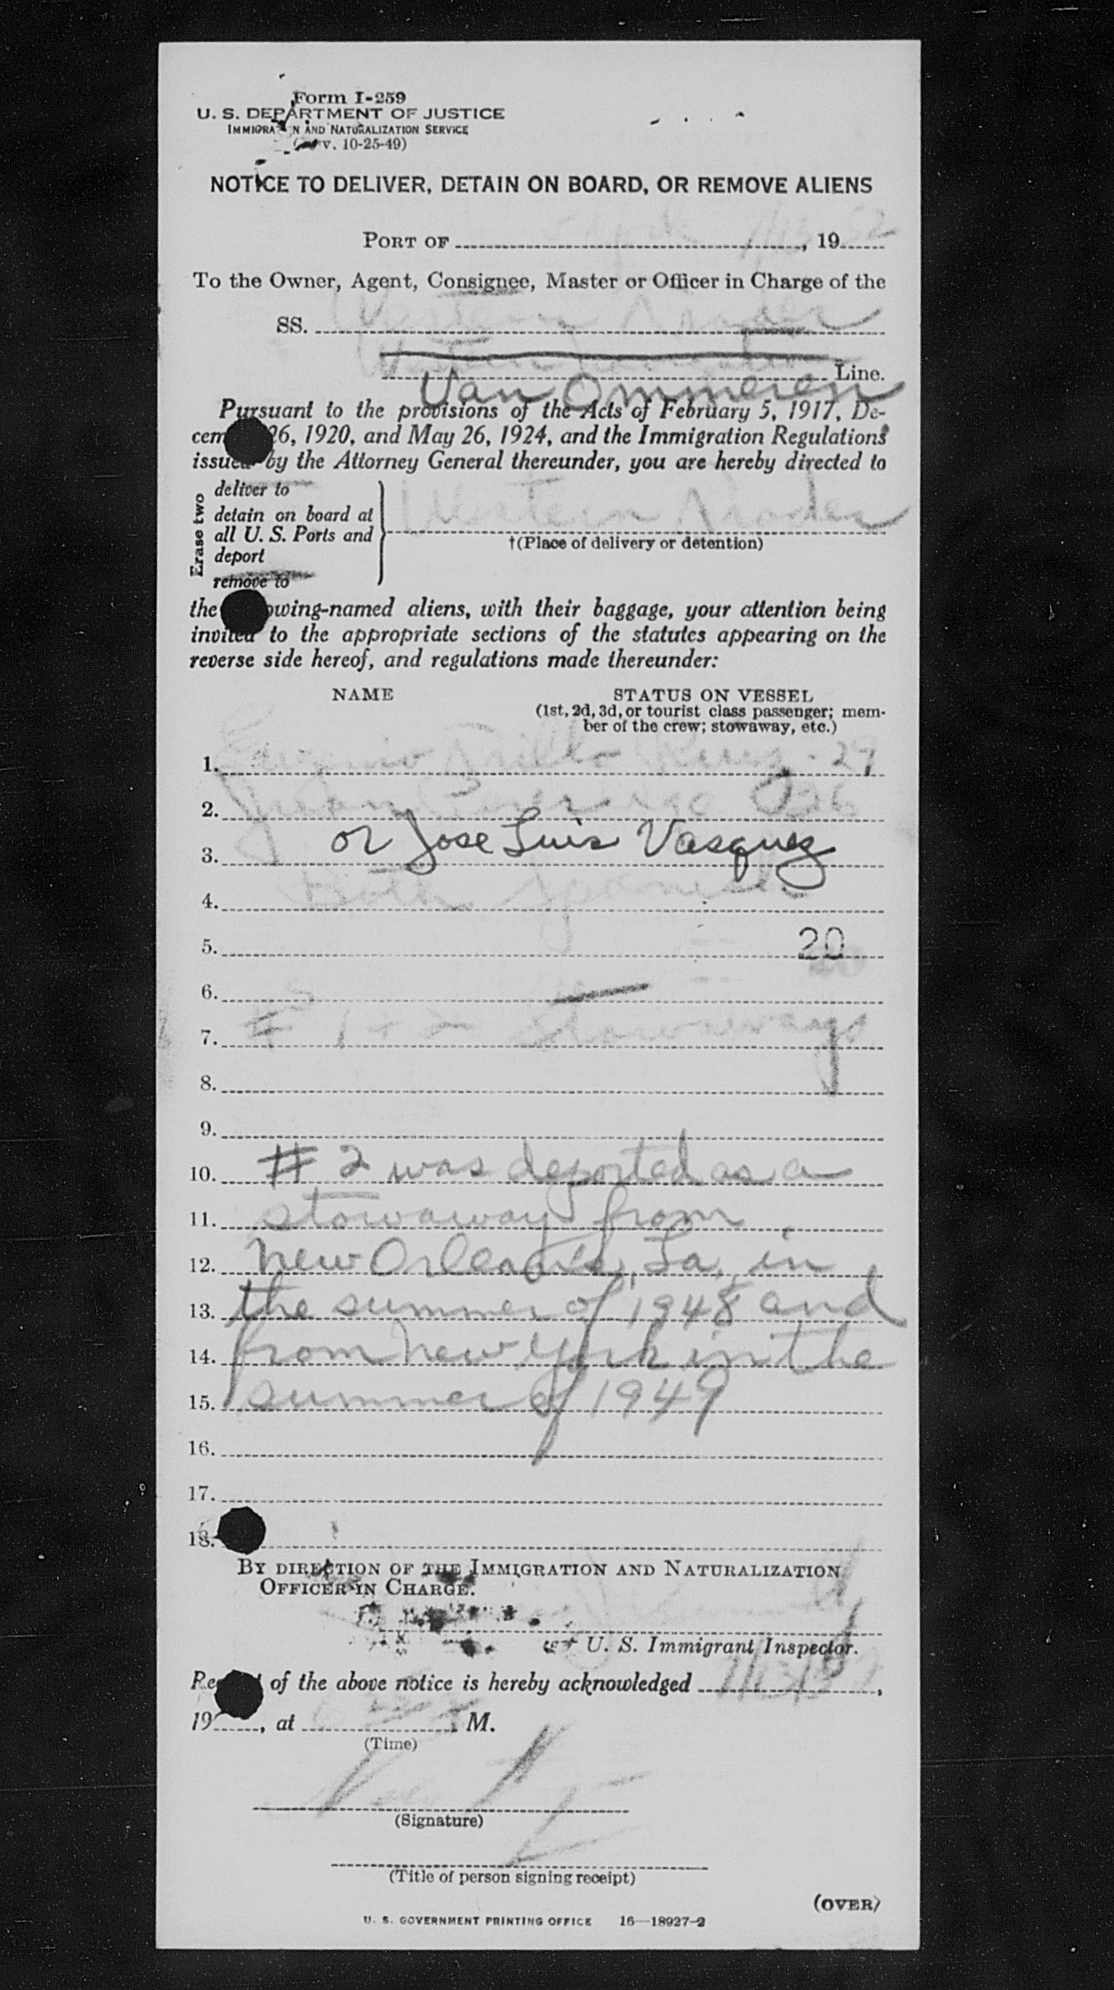 Form I-259
U. S. DEPARTMENT OF JUSTICE
IMMIGRATION AND NATURALIZATION SERVICE
(Rev. 10-25-49)
NOTICE TO DELIVER, DETAIN ON BOARD, OR REMOVE ALIENS
PORT OF , 19 52
To the Owner, Agent, Consignee, Master or Officer in Charge of the
SS. Western Trader
Line.
Van Ommeren
Pursuant to the provisions of the Acts of February 5, 1917, De-
cem 26, 1920, and May 26, 1924, and the Immigration Regulations
issued by the Attorney General thereunder, you are hereby directed to
Erase two
deliver to
detain on board at
all U. S. Ports and
deport
remove to
Western Trader
†(Place of delivery or detention)
the following-named aliens, with their baggage, your attention being
invited to the appropriate sections of the statutes appearing on the
reverse side hereof, and regulations made thereunder:
NAME STATUS ON VESSEL
(1st, 2d, 3d, or tourist class passenger; mem-
ber of the crew; stowaway, etc.)
1. 29
2. Juan 26
3. or Jose Luis Vasquez
4. Both Spanish
5. 20
6.
7. # 1 + 2 Stowaways
8.
9.
10. # 2 was deported as a
11. stowaway from
12. New Orleans, La, in
13. the summer of 1948 and
14. from New York in the
15. summer of 1949
16.
17.
18.
BY DIRECTION OF THE IMMIGRATION AND NATURALIZATION
OFFICER IN CHARGE.
U. S. Immigrant Inspector.
Receipt of the above notice is hereby acknowledged ,
19 , at M.
(Time)
(Signature)
(Title of person signing receipt)
(OVER)
U. S. GOVERNMENT PRINTING OFFICE 16—18927-2